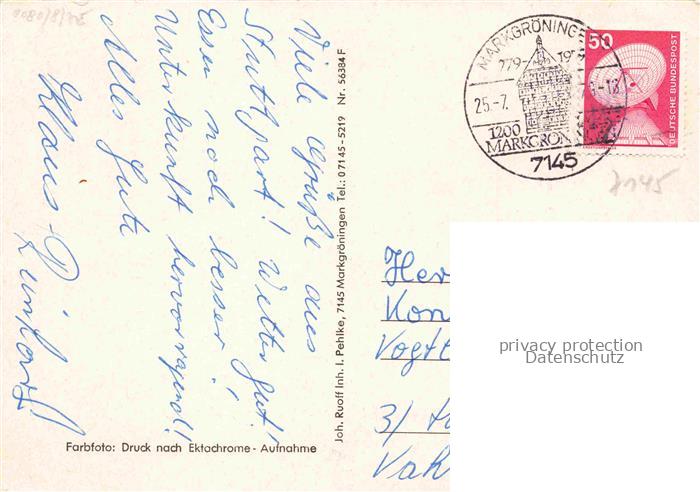 Viele Grüße aus
Stuttgart! Wetter gut!
Essen noch besser!
Unterkunft hervorragend!!
Alles Gute
Klaus
Farbfoto: Druck nach Ektachrome-Aufnahme
Joh. Ruoff Inh. I. Pehlke, 7145 Markgröningen Tel.: 07145-5219 Nr. 56384 F
MARKGRÖNINGEN
779-1979
25.-7.
1200
MARKGRÖN
7145
50
DEUTSCHE BUNDESPOST
7145
Her
Kon
Vogt
3/
Vah
privacy protection
Datenschutz